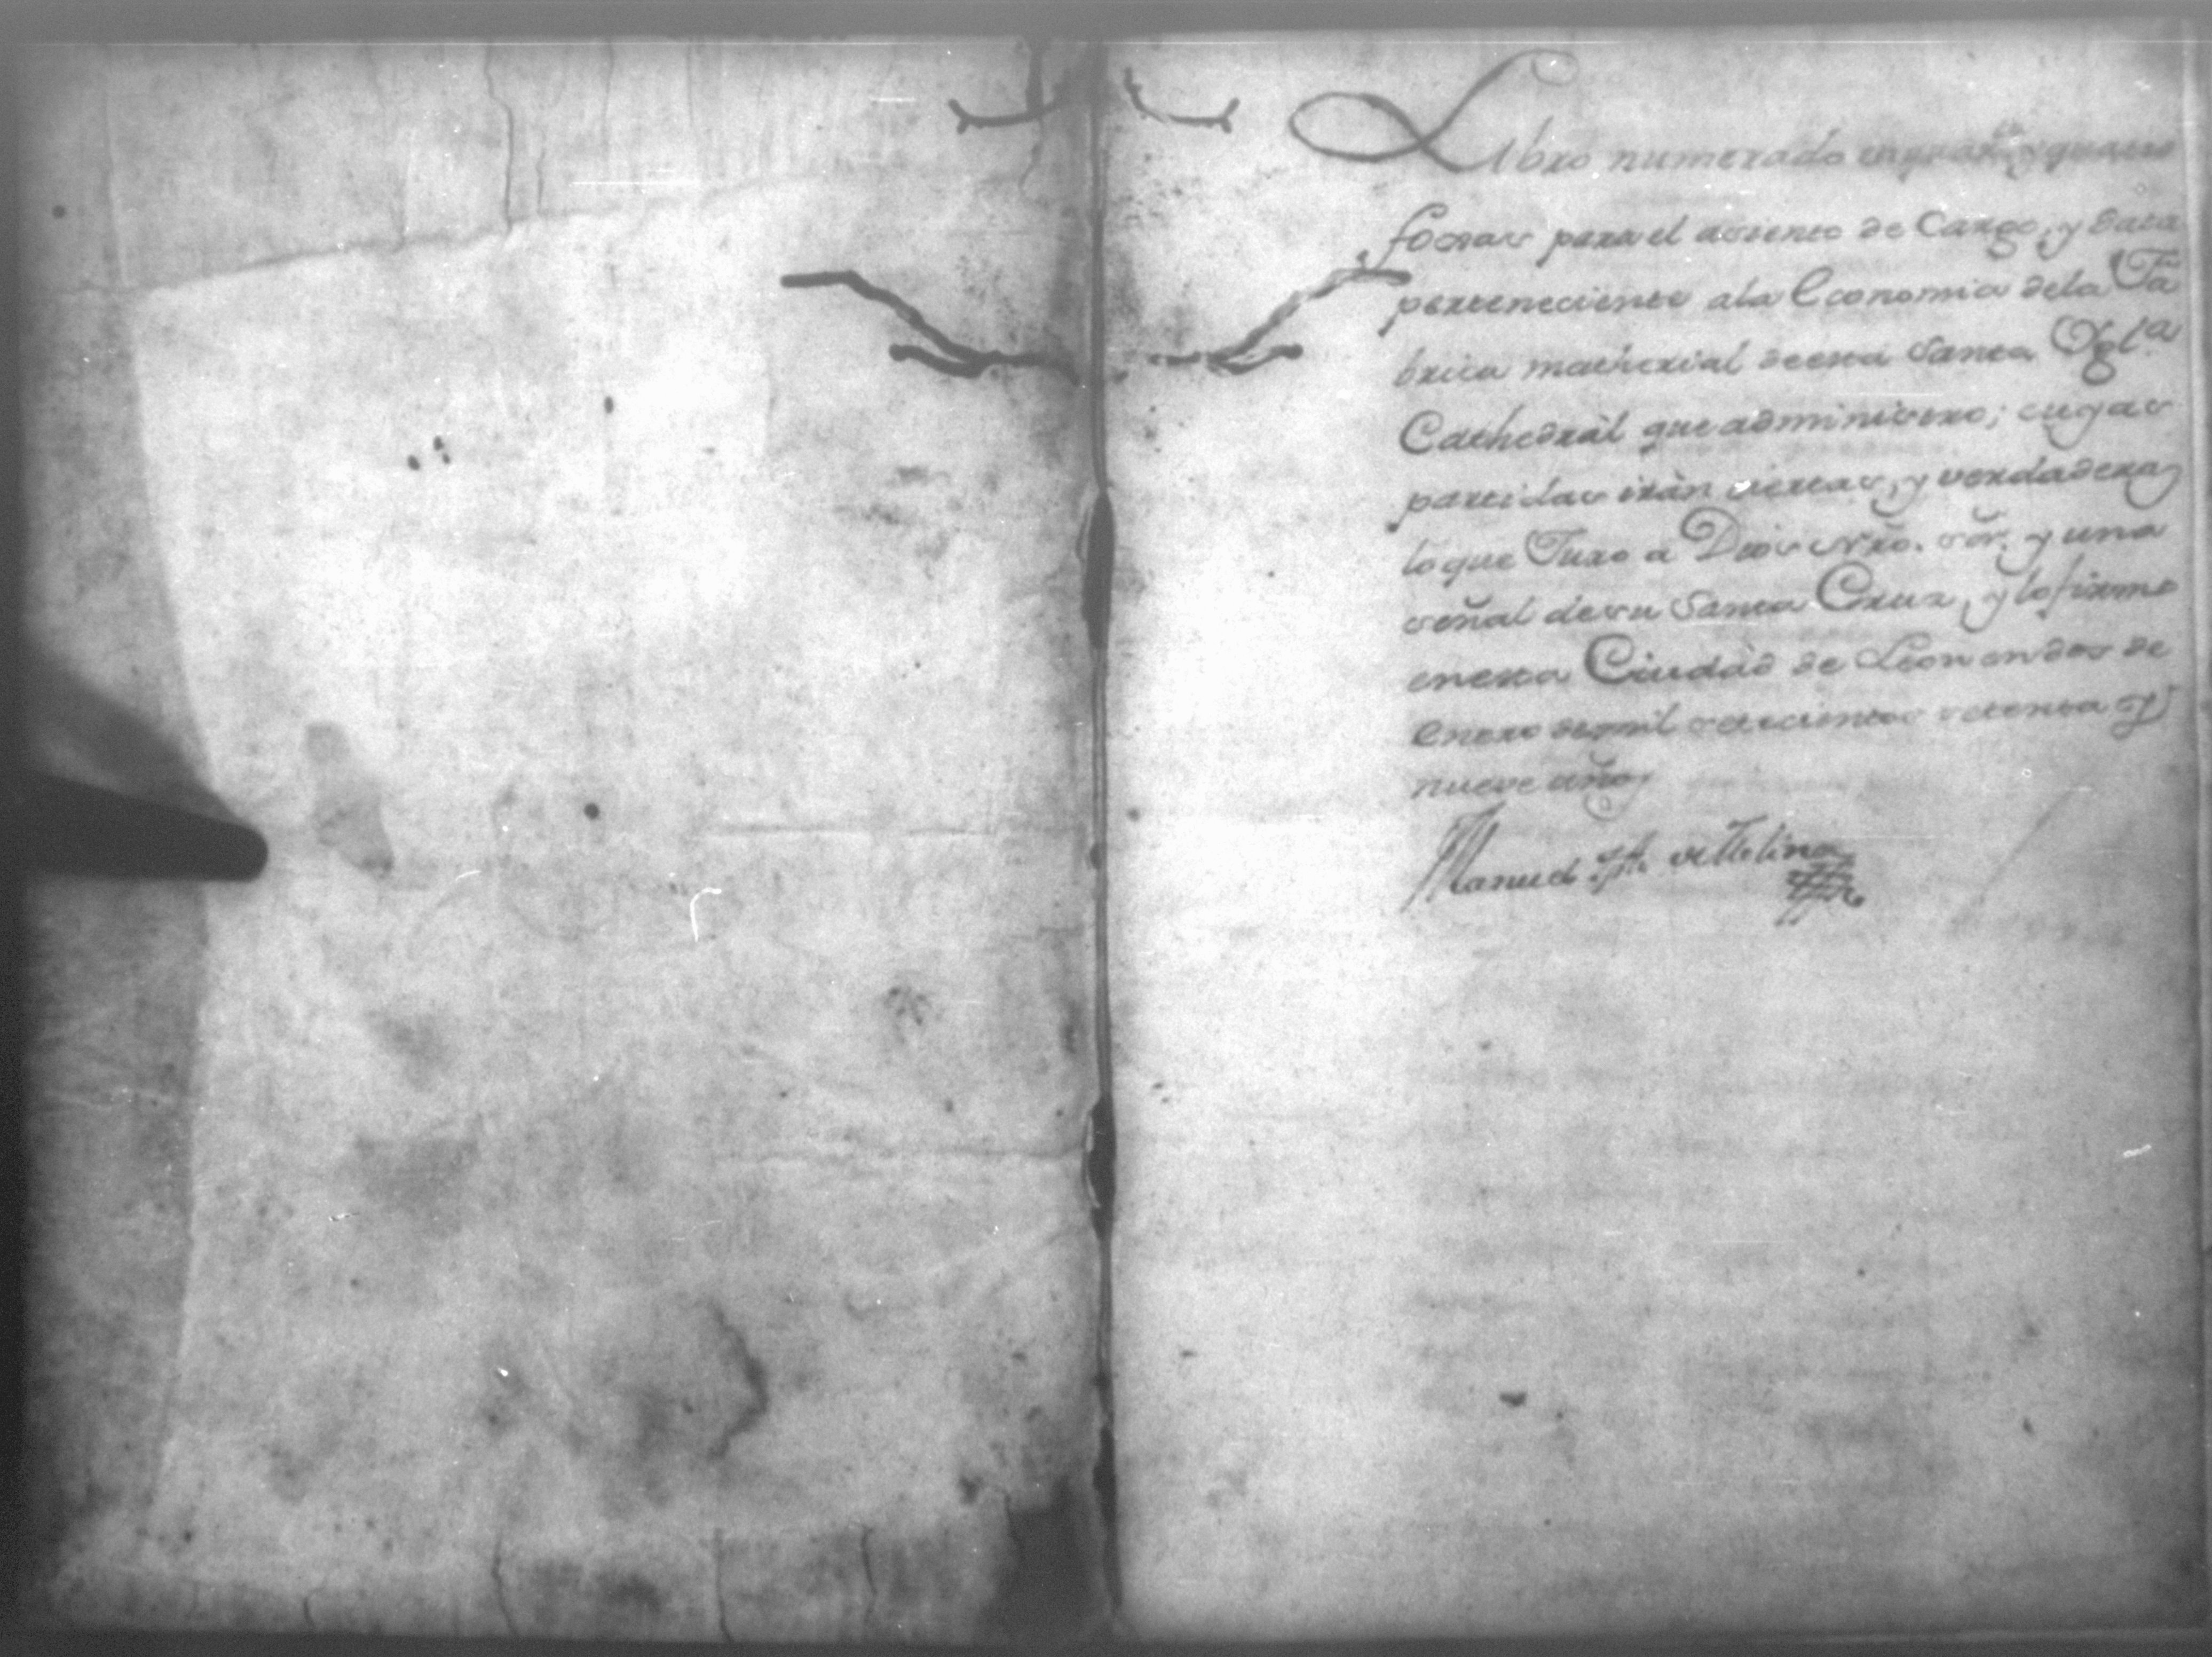 Libro numerado en quar.ta y quatro
foxas para el asiento de Cargo, y Data
perteneciente ala Economia dela Fa
brica matherial deesta Santa Ygl.a
Cathedràl que administro; cuyas
partidas iràn ciertas, y verdaderas
loque Juro a Dios Nro. sōr. y una
señal desu Santa Cruz, y lo firmo
enesta Ciudàd de Leon en dos de
Enero demil setecientos setenta y
nueve años
Manuel